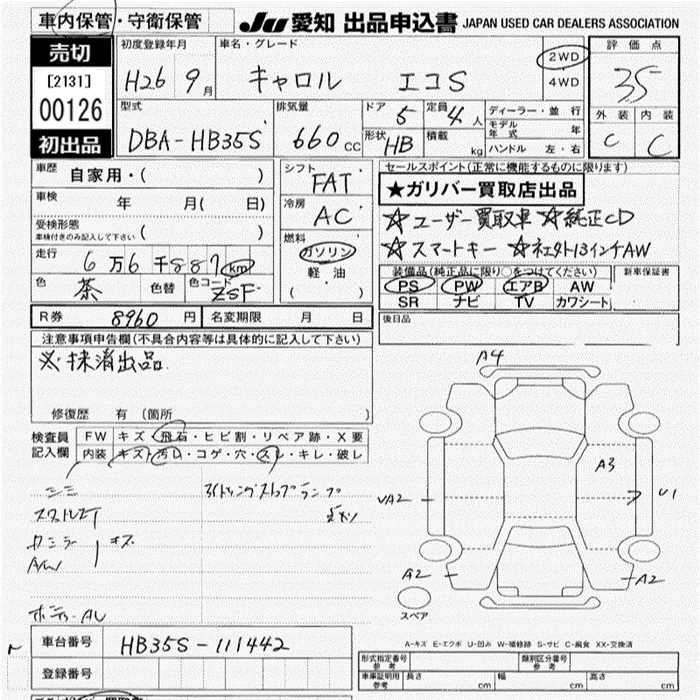 車内保管・守衛保管
JU 愛知 出品申込書 JAPAN USED CAR DEALERS ASSOCIATION
売切
[2131]
00126
初出品
初度登録年月
H26 9月
車名・グレード
キャロル エコS
2WD
4WD
評価点
3.5
外装 内装
C C
型式
DBA-HB35S
排気量
660cc
ドア 5
形状 HB
定員 4人
積載 kg
ディーラー・並行
モデル年式 年
ハンドル 左・右
車歴
自家用・( )
車検
年 月( 日)
受検形態
車検付きのみ記入して下さい ( )
走行
6万6千887km
色 茶
色替
色コード ZSF
シフト FAT
冷房 AC
燃料
ガソリン
軽油
( )
セールスポイント(正常に機能するものに限ります)
★ガリバー買取店出品
☆ユーザー買取車 ☆純正CD
☆スマートキー ☆ネエクト13インチAW
装備品(純正品に限り○をつけてください)
PS PW エアB AW
SR ナビ TV カワシート
新車保証書
後日品
R券 8960円
名変期限 月 日
注意事項申告欄(不具合内容等は具体的に記入して下さい)
※抹消出品
修復歴 有(箇所 )
検査員記入欄
FW キズ・飛石・ヒビ割・リペア跡・X要
内装 キズ・汚レ・コゲ・穴・スレ・キレ・破レ
シミ
キズ
A/W
ボディーAU
A4
A3
UA2
U1
A2
A2
スペア
A-キズ E-エクボ U-凹み W-補修跡 S-サビ C-腐食 XX-交換済
車台番号 HB35S-111442
登録番号
形式指定番号 参考
類別区分番号 参考
車庫証明用 参考 長さ cm 幅 cm 高さ cm